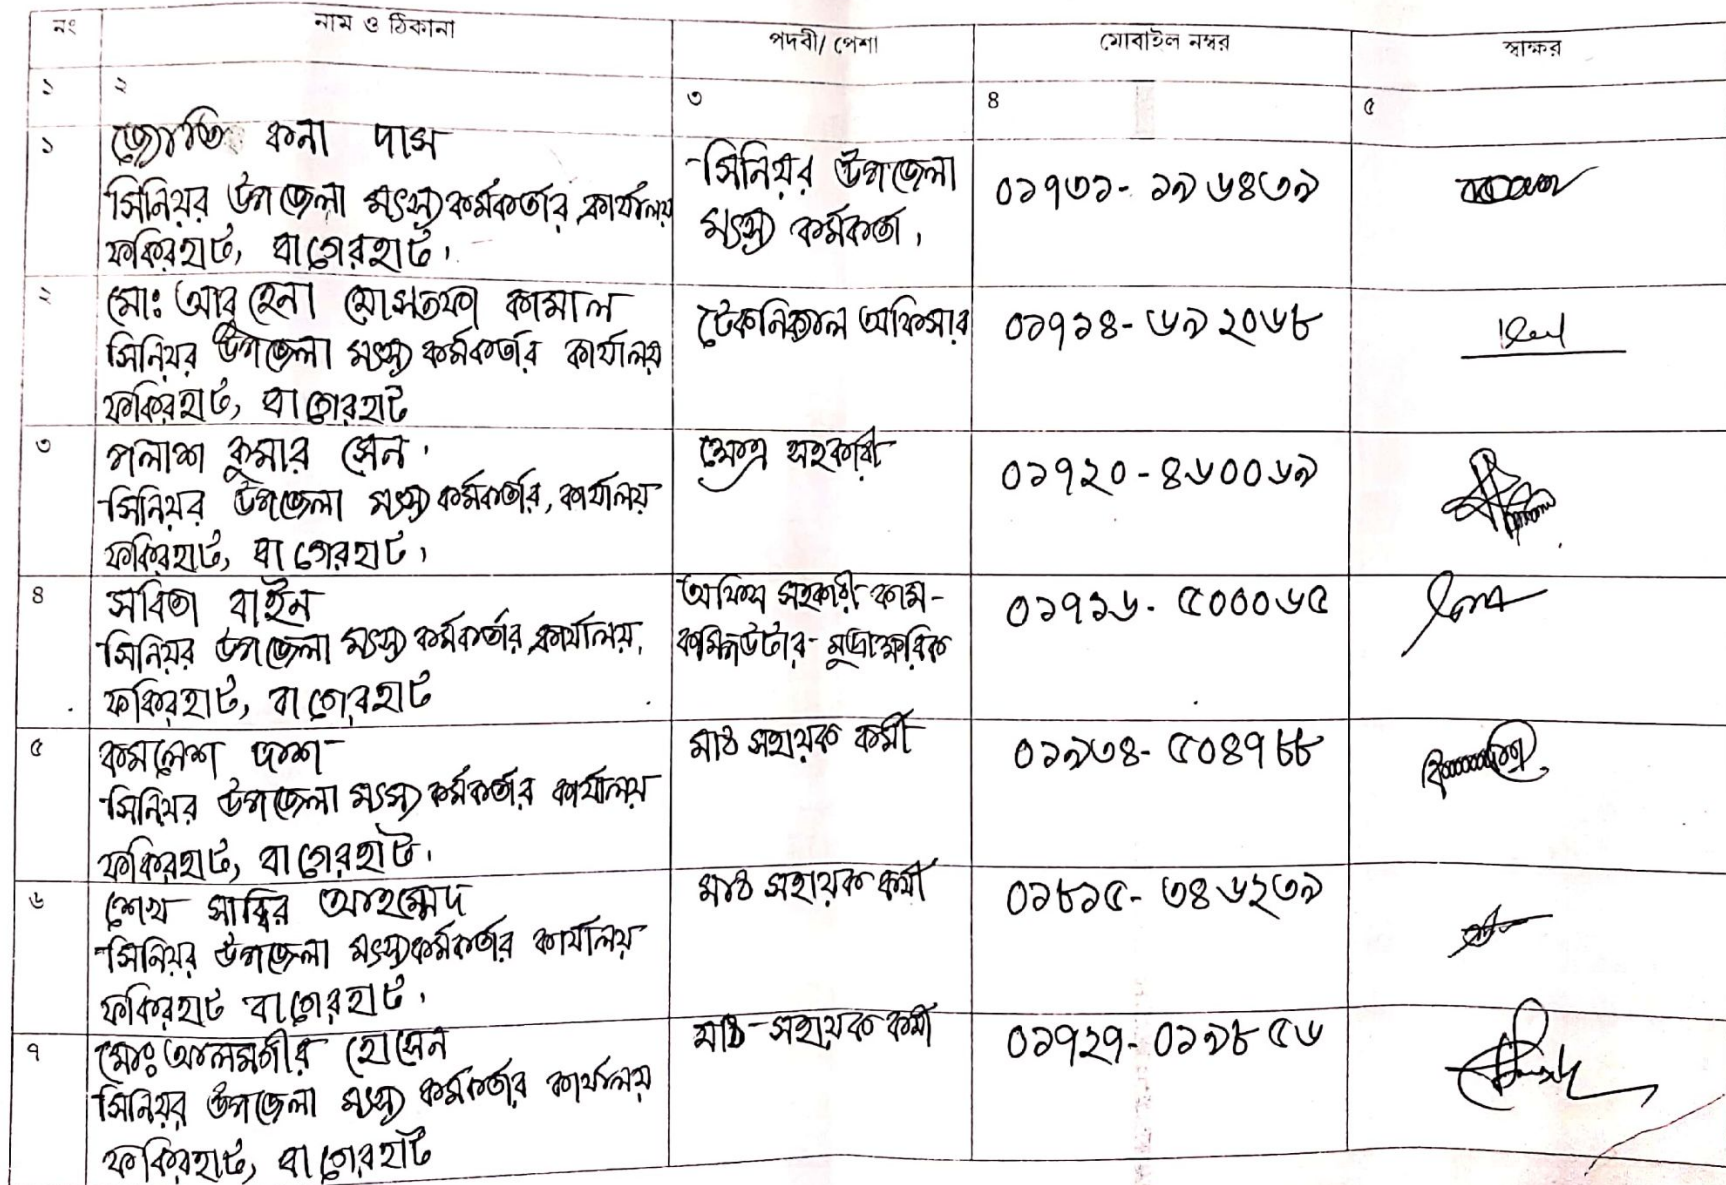 নং নাম ও ঠিকানা পদবী/ পেশা মোবাইল নম্বর স্বাক্ষর
১ ২ ৩ ৪ ৫
১ জ্যোতি কনা দাস
সিনিয়র উপজেলা মৎস্য কর্মকর্তার কার্যালয়
ফকিরহাট, বাগেরহাট।
সিনিয়র উপজেলা
মৎস্য কর্মকর্তা।
০১৭৩১-১৯৬৪৩৯
২ মোঃ আবু হেনা মোস্তফা কামাল
সিনিয়র উপজেলা মৎস্য কর্মকর্তার কার্যালয়
ফকিরহাট, বাগেরহাট
টেকনিক্যাল অফিসার
০১৭১৪-৬৯২০৬৮
৩ পলাশ কুমার সেন।
সিনিয়র উপজেলা মৎস্য কর্মকর্তার, কার্যালয়
ফকিরহাট, বাগেরহাট।
ক্ষেত্র সহকারী
০১৭২০-৪৬০০৬৯
৪ সবিতা বাইন
সিনিয়র উপজেলা মৎস্য কর্মকর্তার কার্যালয়,
ফকিরহাট, বাগেরহাট
অফিস সহকারী কাম-
কম্পিউটার-মুদ্রাক্ষরিক
০১৭১৬-৫০০০৬৫
৫ কমলেশ দাশ
সিনিয়র উপজেলা মৎস্য কর্মকর্তার কার্যালয়
ফকিরহাট, বাগেরহাট।
মাঠ সহায়ক কর্মী
০১৯৩৪-৫০৪৭৮৮
৬ শেখ সাব্বির আহম্মেদ
সিনিয়র উপজেলা মৎস্য কর্মকর্তার কার্যালয়
ফকিরহাট বাগেরহাট।
মাঠ সহায়ক কর্মী
০১৮১৫-৩৪৬২৩৯
৭ মোঃ আলমগীর হোসেন
সিনিয়র উপজেলা মৎস্য কর্মকর্তার কার্যালয়
ফকিরহাট, বাগেরহাট
মাঠ-সহায়ক কর্মী
০১৭২৭-০১৯৮৫৬